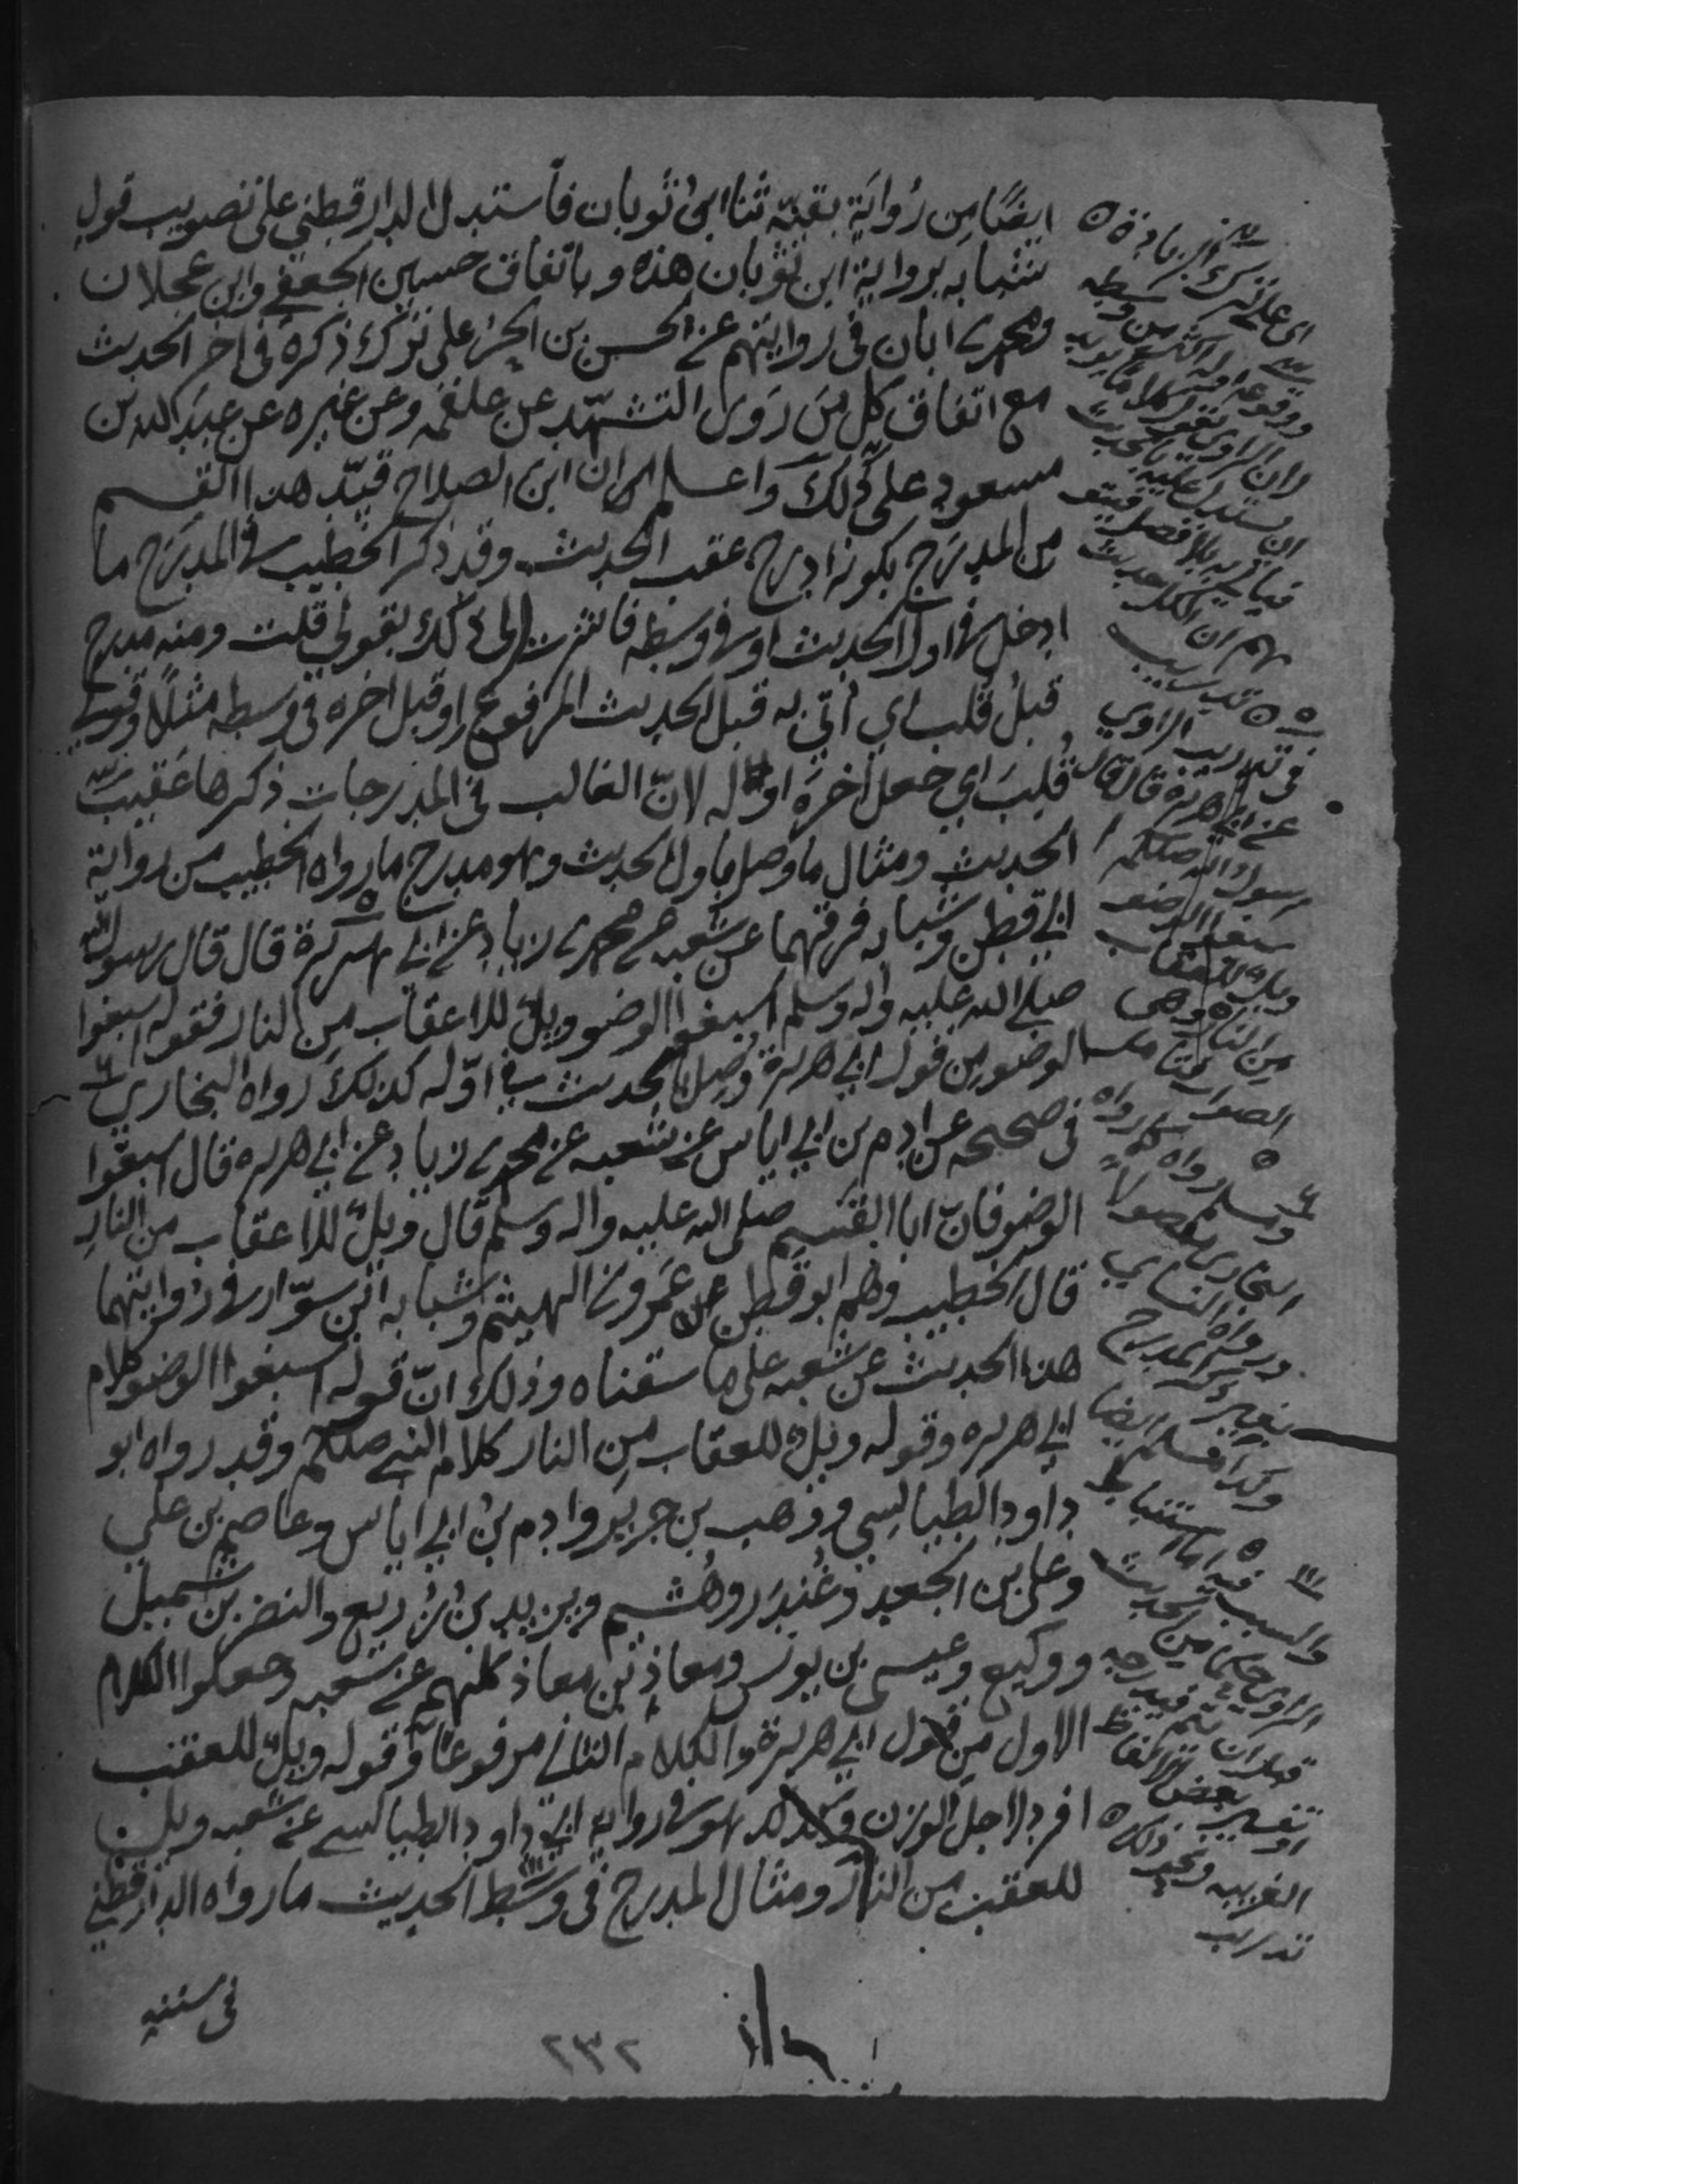 ايضًا من رواية بقية ثنا ابن ثوبان فاستدل الدارقطني على تصويب قول
شبابه برواية ابن ثوبان هذه وباتفاق حسين الجعفي وابن عجلان
ومحمد بن ابان في روايتهم عن الحسن بن الحر على ترك ذكره في اخر الحديث
مع اتفاق كل من روى التشهد عن علقمه وعن غيره عن عبد الله بن
مسعود على ذلك واعلم ان ابن الصلاح قيد هذا القسم
من المدرج بكونه ادرج عقب الحديث وقد ذكر الخطيب في المدرج ما
ادخل في اول الحديث او في وسطه فاشرت الى ذلك بقولي قلت ومنه مدرج
قبل قلب اي أتي به قبل الحديث المرفوع او قبل اخره في وسطه مثلًا وقولي
قلب اي جعل اخره اوله لان الغالب في المدرجات ذكرها عقيب
الحديث ومثال ما وصل باول الحديث وهو مدرج ما رواه الخطيب من رواية
ابي قطن وشبابه فرقهما عن شعبه عن محمد بن زياد عن ابي هريرة قال قال رسول الله
صلى الله عليه واله وسلم اسبغوا الوضو ويل للاعقاب من النار فقوله اسبغوا
الوضو من قول ابي هريرة وصل بالحديث في اوله كذلك رواه البخاري
في صحيحه عن ادم بن ابي اياس عن شعبه عن محمد بن زياد عن ابي هريره قال اسبغوا
الوضو فان ابا القسم صلى الله عليه واله وسلم قال ويل للاعقاب من النار
قال الخطيب وهم ابو قطن عمرو بن الهيثم وشبابه ابن سوار في روايتهما
هذا الحديث عن شعبه على ما سقناه وذلك ان قوله اسبغوا الوضو كلام
ابي هريره وقوله ويل للعقاب من النار كلام النبي صللم وقد رواه ابو
داود الطيالسي ووهب بن جرير وادم بن ابي اياس وعاصم بن علي
وعلي بن الجعد وغندر وهشيم ويزيد بن زريع والنضر بن شميل
ووكيع وعيسى بن يونس ومعاذ بن معاذ كلهم عن شعبه وجعلوا الكلام
الاول من قول ابي هريرة والكلام الثاني مرفوعًا وقوله ويل للعقب
افرد لاجل الوزن هو في رواية ابي داود الطيالسي عن شعبه ويل
للعقب من النار ومثال المدرج في وسط الحديث ما رواه الدارقطني
في سننه
اي على ترك الزيادة
في تدريب الراوي
عن ابي هريرة قال قال
رسول الله صللم
اسبغوا الوضو
ويل للاعقاب
من النار
ومسلم رواه كما رواه
البخاري مفصولًا
ورواه النسائي
بغير ذكر المدرج
وكذا مسلم ايضا
والسبب فيه اما استنباط
الراوي حكما من الحديث
قبل ان يتم فيدرجه
او تفسير بعض الالفاظ
الغريبه ونحو ذلك
تدريب
٢٣٢